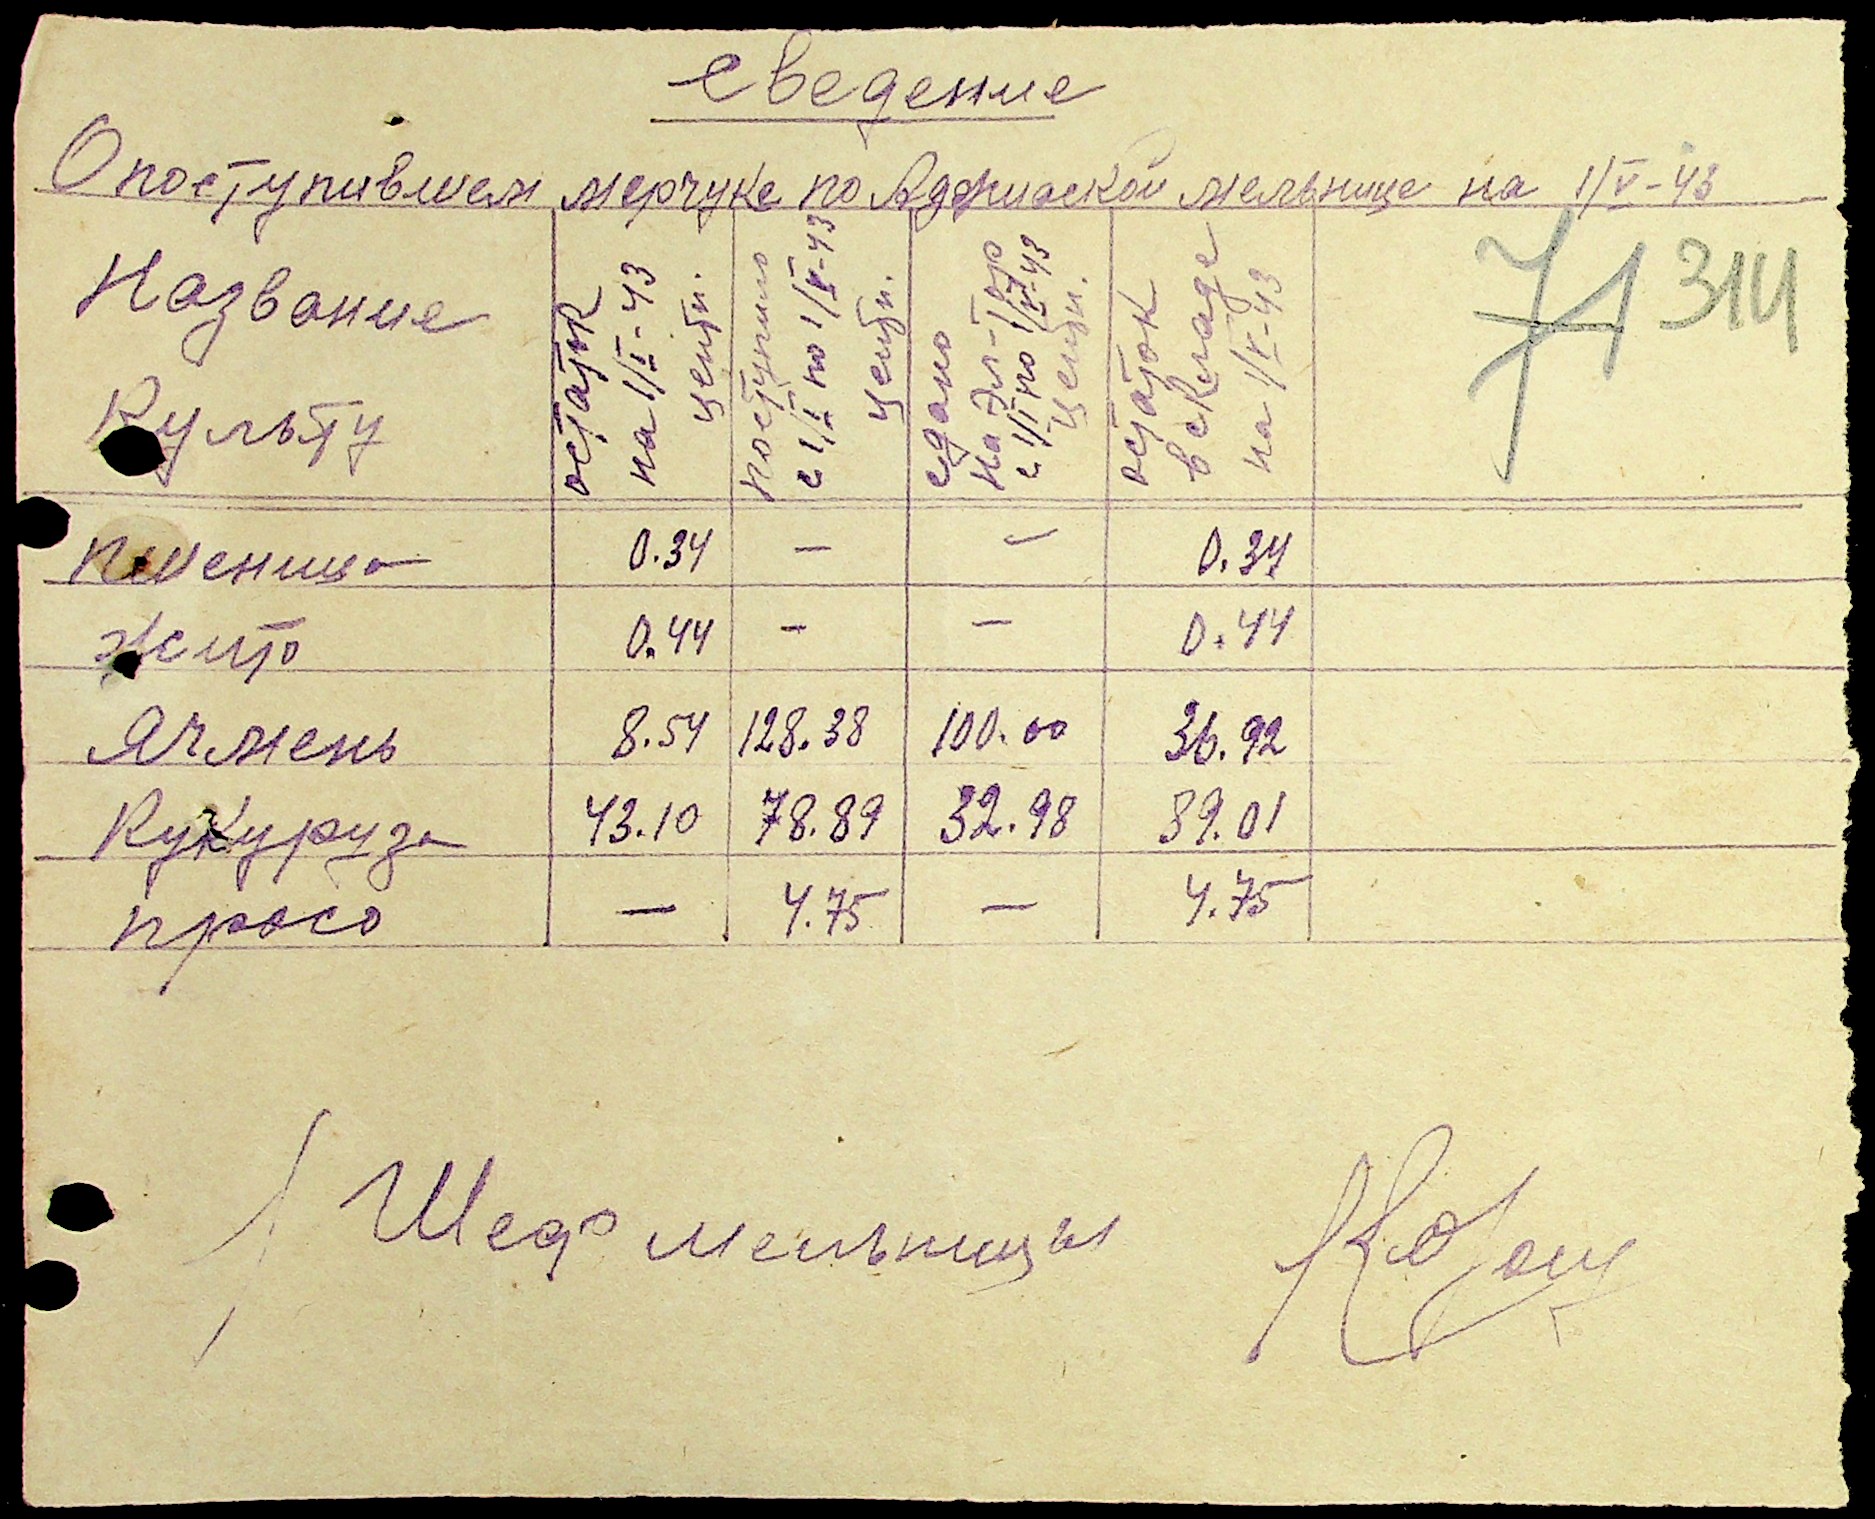 Сведение
О поступившем мерчуке по Аджиаской мельнице на 1/V-43
71 314
Название Культу
остаток на 1/I-43 центн.
поступило с 1/I по 1/V-43 центн.
сдано на с 1/I по 1/V-43 центн.
остаток в складе на 1/V-43
пшеница 0.34 – – 0.34
Жито 0.44 – – 0.44
Ячмень 8.54 128.38 100.00 36.92
Кукуруза 43.10 78.89 32.98 89.01
просо — 4.75 — 4.75
Шеф мельницы